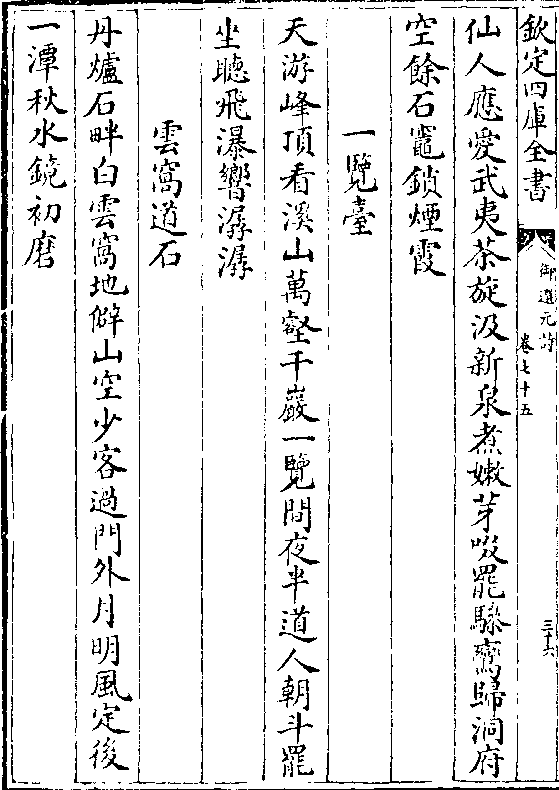 欽定四庫全書
御選元詩
卷七十五
三十六
仙人應愛武夷茶旋汲新泉煮嫩芽啜罷驂鸞歸洞府
空餘石竈鎖煙霞
一覽臺
天游峰頂看溪山萬壑千巖一覽間夜半道人朝斗罷
坐聽飛瀑響潺潺
雲窩道石
丹爐石畔白雲窩地僻山空少客過門外月明風定後
一潭秋水鏡初磨